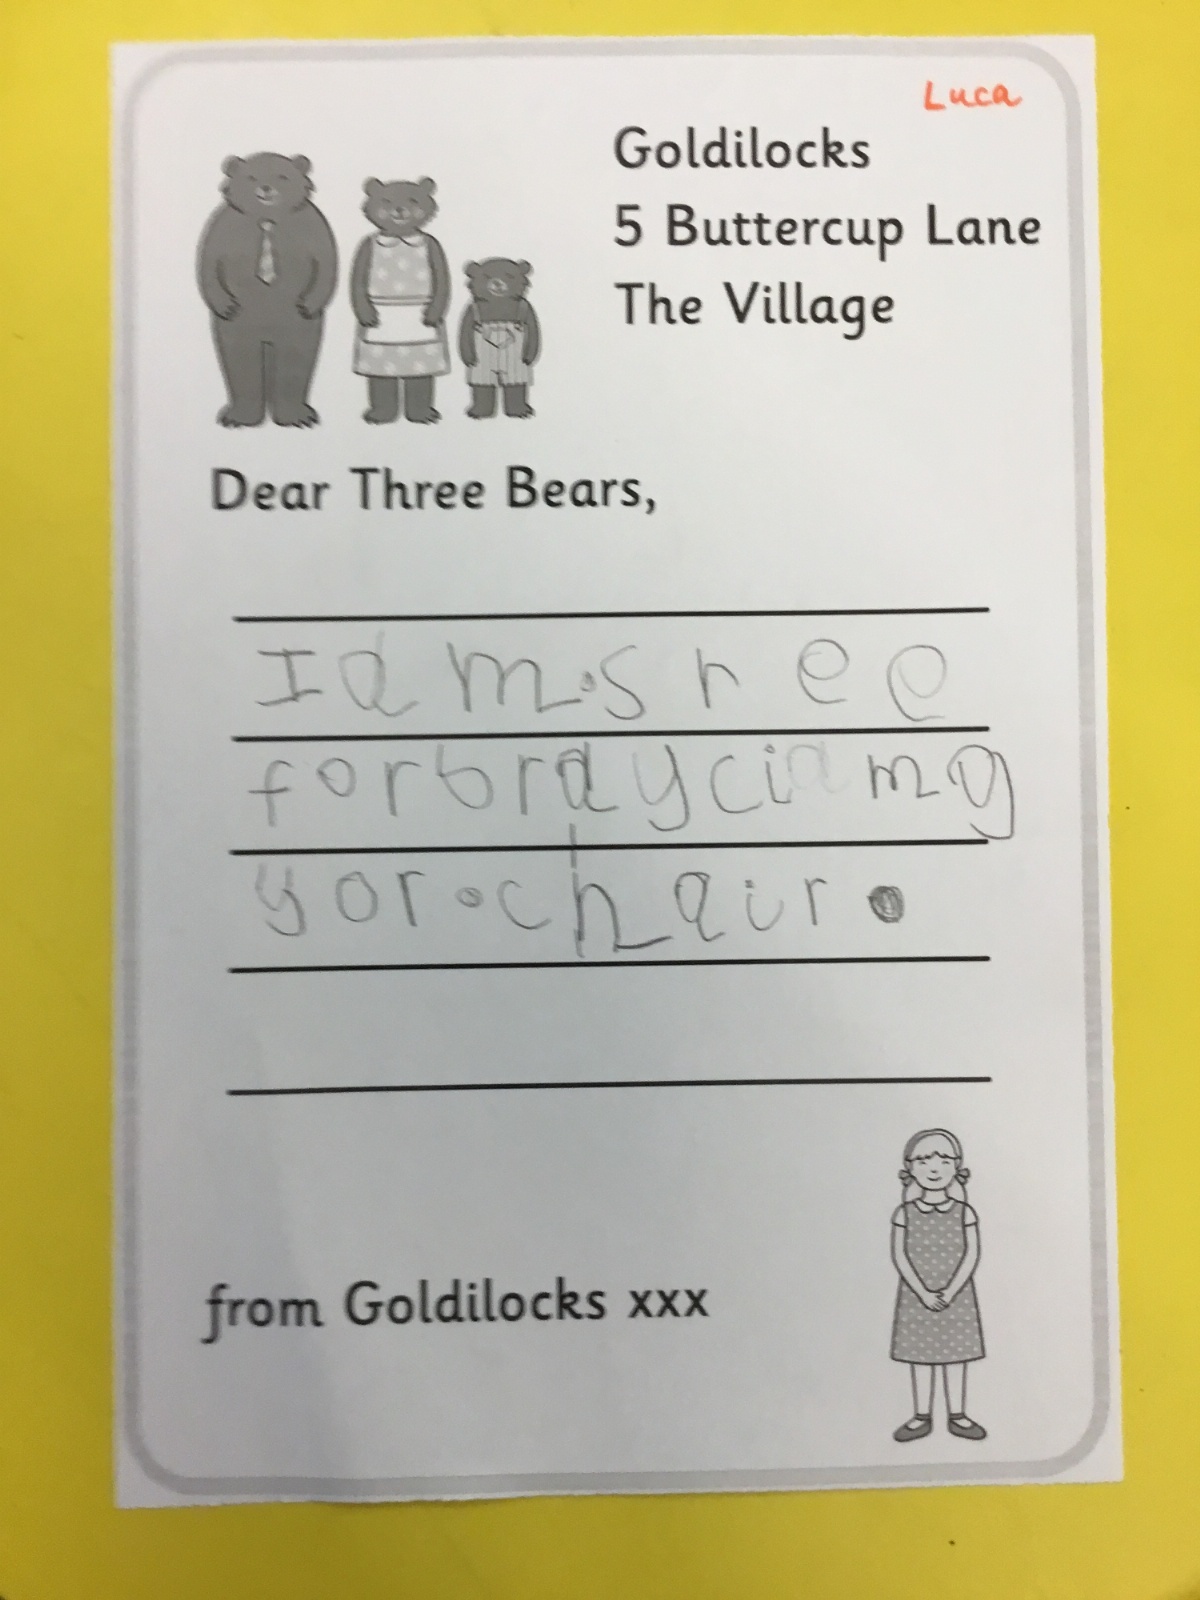 Luca
Goldilocks
5 Buttercup Lane
The Village
Dear Three Bears,
I am.sree
forbrayciamg
yor.chair.
from Goldilocks xxx